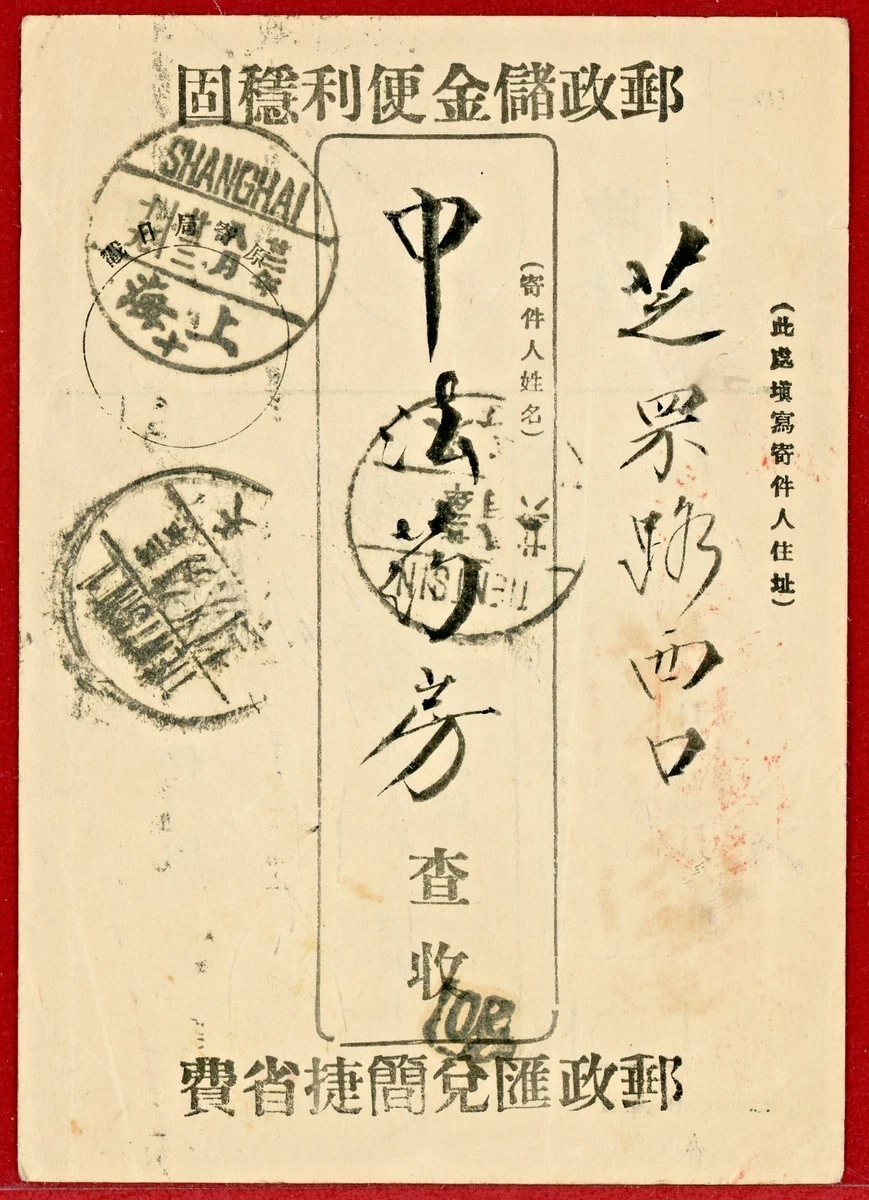 郵政儲金便利穩固
(此處填寫寄件人住址)
芝罘路西口
(寄件人姓名)
中法葯房
查收
原寄局日戳
SHANGHAI
八月
廿二
上海
TIENTSIN
TIENTSIN
郵政匯兌簡捷省費